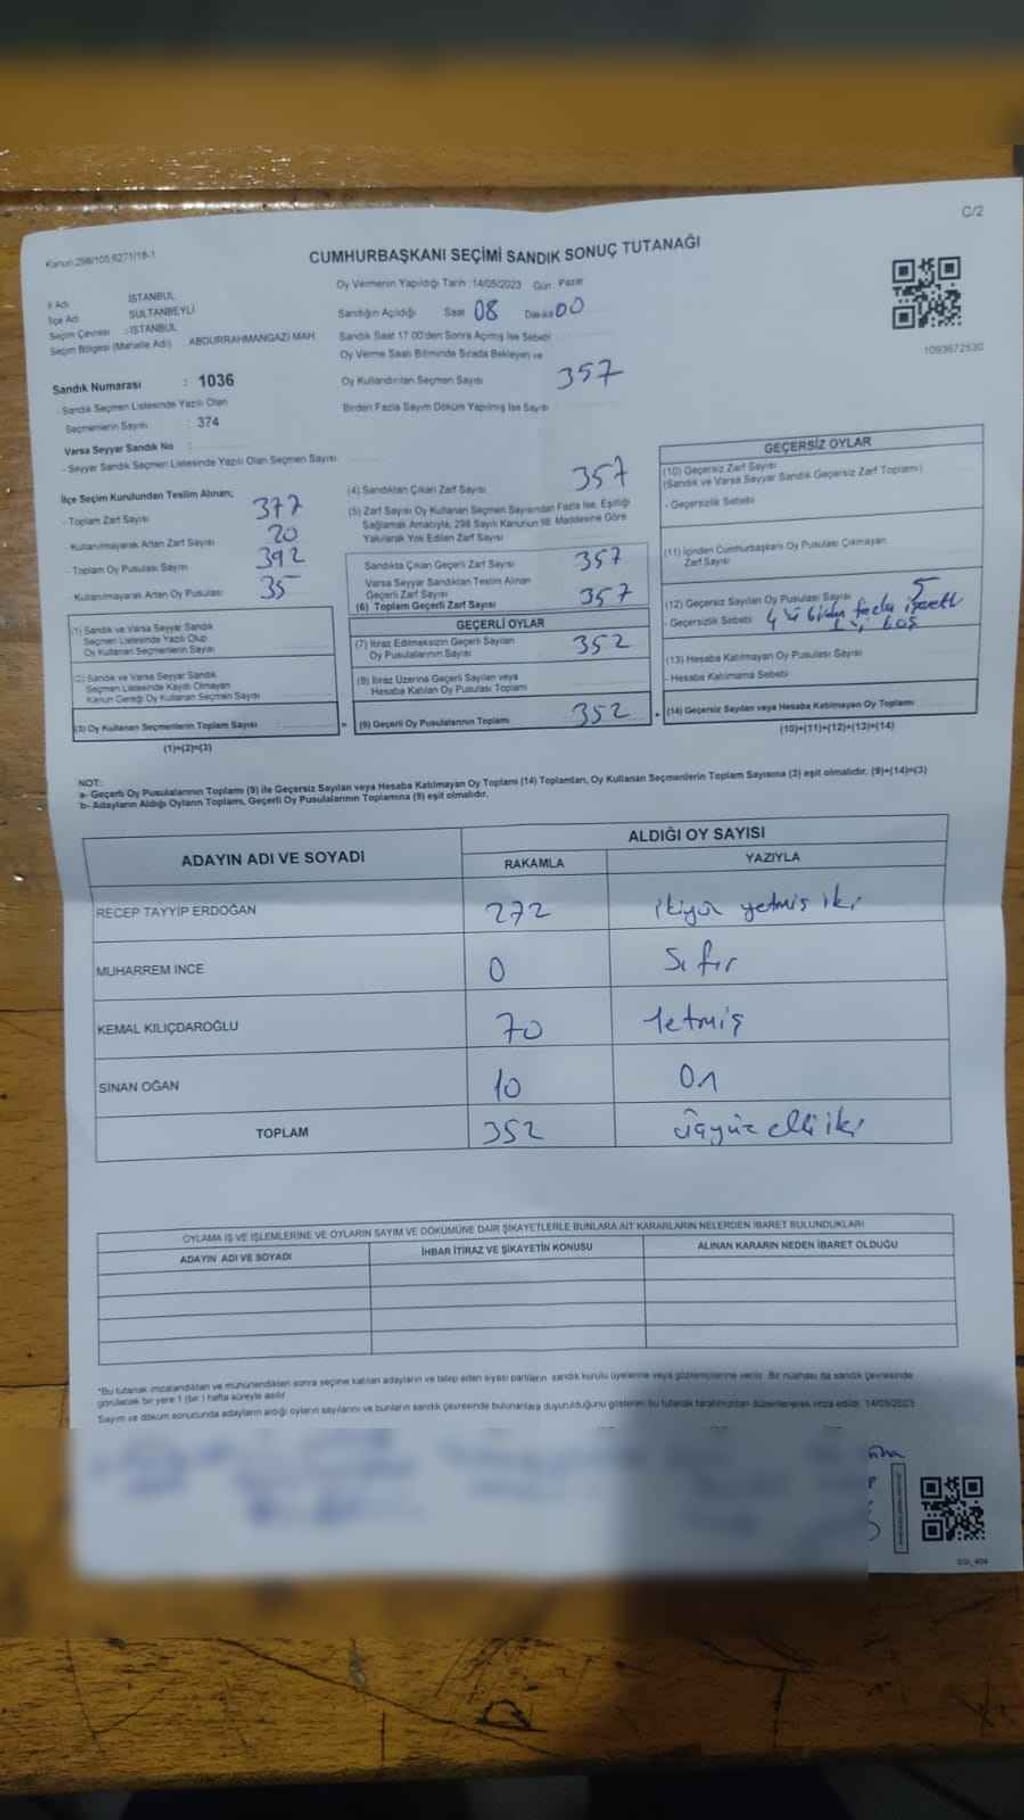 C/2
Kanun:298/105,6271/18-1
CUMHURBAŞKANI SEÇİMİ SANDIK SONUÇ TUTANAĞI
İl Adı İSTANBUL
İlçe Adı SULTANBEYLİ
Seçim Çevresi : İSTANBUL
Seçim Bölgesi (Mahalle Adı) : ABDURRAHMANGAZİ MAH.
Oy Vermenin Yapıldığı Tarih : 14/05/2023 Gün : Pazar
Sandığın Açıldığı Saat 08 Dakika 00
Sandık Saat 17:00'den Sonra Açılmış İse Sebebi
Oy Verme Saati Bitiminde Sırada Bekleyen ve
Oy Kullandırılan Seçmen Sayısı 357
Birden Fazla Sayım Döküm Yapılmış İse Sayısı
1093672530
Sandık Numarası : 1036
- Sandık Seçmen Listesinde Yazılı Olan
Seçmenlerin Sayısı : 374
Varsa Seyyar Sandık No :
- Seyyar Sandık Seçmen Listesinde Yazılı Olan Seçmen Sayısı
İlçe Seçim Kurulundan Teslim Alınan;
- Toplam Zarf Sayısı 377
- Kullanılmayarak Artan Zarf Sayısı 20
- Toplam Oy Pusulası Sayısı 392
- Kullanılmayarak Artan Oy Pusulası 35
(1) Sandık ve Varsa Seyyar Sandık
Seçmen Listesinde Yazılı Olup
Oy Kullanan Seçmenlerin Sayısı
(2) Sandık ve Varsa Seyyar Sandık
Seçmen Listesinde Kaydı Olmayan
Kanun Gereği Oy Kullanan Seçmen Sayısı
(3) Oy Kullanan Seçmenlerin Toplam Sayısı
(1)+(2)=(3)
(4) Sandıktan Çıkan Zarf Sayısı 357
(5) Zarf Sayısı Oy Kullanan Seçmen Sayısından Fazla İse, Eşitliği
Sağlamak Amacıyla, 298 Sayılı Kanunun 98. Maddesine Göre
Yakılarak Yok Edilen Zarf Sayısı
Sandıkta Çıkan Geçerli Zarf Sayısı 357
Varsa Seyyar Sandıktan Teslim Alınan
Geçerli Zarf Sayısı
(6) Toplam Geçerli Zarf Sayısı 357
GEÇERLİ OYLAR
(7) İtiraz Edilmeksizin Geçerli Sayılan
Oy Pusulalarının Sayısı 352
(8) İtiraz Üzerine Geçerli Sayılan veya
Hesaba Katılan Oy Pusulası Toplamı
(9) Geçerli Oy Pusulalarının Toplamı 352
GEÇERSİZ OYLAR
(10) Geçersiz Zarf Sayısı
(Sandık ve Varsa Seyyar Sandık Geçersiz Zarf Toplamı)
- Geçersizlik Sebebi
(11) İçinden Cumhurbaşkanı Oy Pusulası Çıkmayan
Zarf Sayısı
(12) Geçersiz Sayılan Oy Pusulası Sayısı 5
- Geçersizlik Sebebi 4 ü birden fazla işaretli
boş
(13) Hesaba Katılmayan Oy Pusulası Sayısı
- Hesaba Katılmama Sebebi
(14) Geçersiz Sayılan veya Hesaba Katılmayan Oy Toplamı
(10)+(11)+(12)+(13)=(14)
NOT:
a- Geçerli Oy Pusulalarının Toplamı (9) ile Geçersiz Sayılan veya Hesaba Katılmayan Oy Toplamı (14) Toplamları, Oy Kullanan Seçmenlerin Toplam Sayısına (3) eşit olmalıdır. (9)+(14)=(3)
b- Adayların Aldığı Oyların Toplamı, Geçerli Oy Pusulalarının Toplamına (9) eşit olmalıdır.
ADAYIN ADI VE SOYADI
ALDIĞI OY SAYISI
RAKAMLA YAZIYLA
RECEP TAYYİP ERDOĞAN 272 ikiyüz yetmiş iki
MUHARREM İNCE 0 Sıfır
KEMAL KILIÇDAROĞLU 70 Yetmiş
SİNAN OĞAN 10 On
TOPLAM 352 üçyüz elli iki
OYLAMA İŞ VE İŞLEMLERİNE VE OYLARIN SAYIM VE DÖKÜMÜNE DAİR ŞİKAYETLERLE BUNLARA AİT KARARLARIN NELERDEN İBARET BULUNDUKLARI
ADAYIN ADI VE SOYADI İHBAR İTİRAZ VE ŞİKAYETİN KONUSU ALINAN KARARIN NEDEN İBARET OLDUĞU
*Bu tutanak imzalandıktan ve mühürlendikten sonra seçime katılan adayların ve talep eden siyasi partilerin sandık kurulu üyelerine veya gözlemcilerine verilir. Bir nüshası da sandık çevresinde
görülecek bir yere 1 (bir) hafta süreyle asılır.
Sayım ve döküm sonucunda adayların aldığı oyların sayılarını ve bunların sandık çevresinde bulunanlara duyurulduğunu gösteren bu tutanak tarafımızdan düzenlenerek imza edildi. 14/05/2023